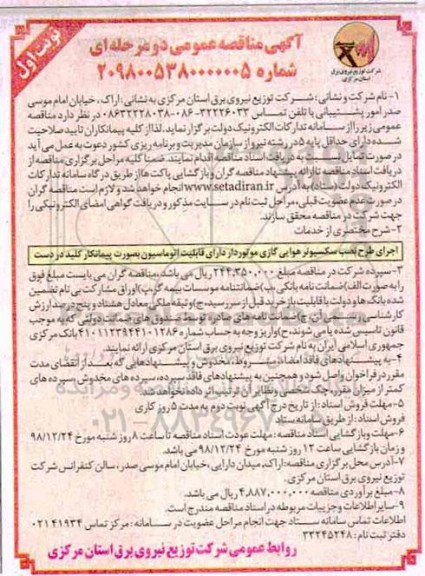 نوبت اول
آگهی مناقصه عمومی دو مرحله ای
شماره ۲۰۹۸۰۰۵۳۸۰۰۰۰۰۰۵
شرکت توزیع نیروی برق
استان مرکزی
۱- نام شرکت و نشانی : شرکت توزیع نیروی برق استان مرکزی به نشانی : اراک، خیابان امام موسی
صدر امور پشتیبانی با تلفن تماس ۳۲۲۲۶۰۳۳-۰۸۶ -۰۸۶۳۲۲۲۸۰۳۸ در نظر دارد مناقصه
عمومی زیر را از سامانه تدارکات الکترونیک دولت برگزار نماید. لذا از کلیه پیمانکاران تایید صلاحیت
شده دارای حداقل پایه ۵ در رشته نیرو از سازمان مدیریت و برنامه ریزی کشور دعوت به عمل می آید
در صورت تمایل نسبت به دریافت اسناد مناقصه اقدام نمایند. ضمنا کلیه مراحل برگزاری مناقصه از
دریافت اسناد مناقصه تا ارائه پیشنهاد مناقصه گران و بازگشایی پاکت ها از طریق درگاه سامانه تدارکات
الکترونیک دولت (ستاد) به آدرس www.setadiran.ir انجام خواهد شد و لازم است مناقصه گران
در صورت عدم عضویت قبلی، مراحل ثبت نام در سایت مذکور و دریافت گواهی امضای الکترونیکی را
جهت شرکت در مناقصه محقق سازند.
۲- شرح مختصری از خدمات
اجرای طرح نصب سکسیونر هوایی گازی موتوردار دارای قابلیت اتوماسیون بصورت پیمانکار کلید در دست
۳- سپرده شرکت در مناقصه مبلغ ۲۴۴,۳۵۰,۰۰۰ ریال می باشد. مناقصه گران می بایست مبلغ فوق
را به صورت الف) ضمانت نامه بانکی ب) ضمانتنامه موسسات بیمه گر پ) اوراق مشارکت بی نام تضمین
شده بانک ها و دولت با قابلیت باز خرید قبل از سررسید، ج) وثیقه ملکی معادل هشتاد و پنج درصد ارزش
کارشناسی رسمی آن چ) ضمانت نامه های صادره توسط صندوق های ضمانت دولتی که به موجب
قانون تاسیس شده یا می شوند، ح) واریز وجه به حساب شماره ۴۱۰۱۱۲۳۹۴۴۱۰۱۲۸۶ بانک مرکزی
جمهوری اسلامی ایران به نام شرکت توزیع نیروی برق استان مرکزی ارائه نمایند.
۴- به پیشنهادهای فاقد امضا، مشروط، مخدوش و پیشنهادهایی که بعد از انقضای مدت
مقرر در فراخوان واصل شود و همچنین به پیشنهادهای فاقد سپرده، سپرده های مخدوش، سپرده های
کمتر از میزان مقرر، چک شخصی و نظایر آن ترتیب اثر داده نخواهد شد
۵- مهلت فروش اسناد : از تاریخ درج آگهی نوبت دوم به مدت ۵ روز کاری
فروش اسناد : از طریق سامانه ستاد
۶- مهلت و بازگشایی اسناد مناقصه : مهلت عودت اسناد مناقصه تا ساعت ۸ روز شنبه مورخ ۹۸/۱۲/۲۴
و زمان بازگشایی ساعت ۱۲ روز شنبه مورخ ۹۸/۱۲/۲۴ می باشد.
۷- آدرس محل برگزاری مناقصه: اراک، میدان دارایی، خیابان امام موسی صدر، سالن کنفرانس شرکت
توزیع نیروی برق استان مرکزی.
۸- مبلغ برآوردی مناقصه ۴,۸۸۷,۰۰۰,۰۰۰ ریال می باشد.
۹- سایر اطلاعات و جزییات مربوطه در اسناد مناقصه مندرج است.
اطلاعات تماس سامانه ستاد جهت انجام مراحل عضویت در سامانه : مرکز تماس ۴۱۹۳۴-۰۲۱
دفتر ثبت نام : ۳۳۲۴۵۲۴۸
روابط عمومی شرکت توزیع نیروی برق استان مرکزی